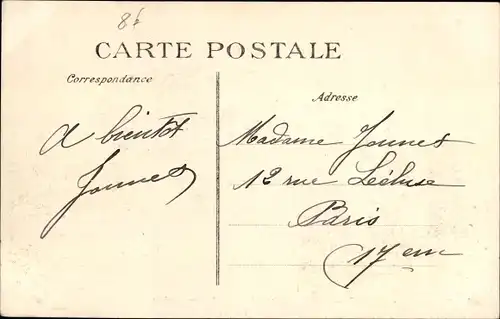 8f
CARTE POSTALE
Correspondance
Adresse
a bientot
Jounet
Madame Jounet
12 rue Lécluse
Paris
17 em